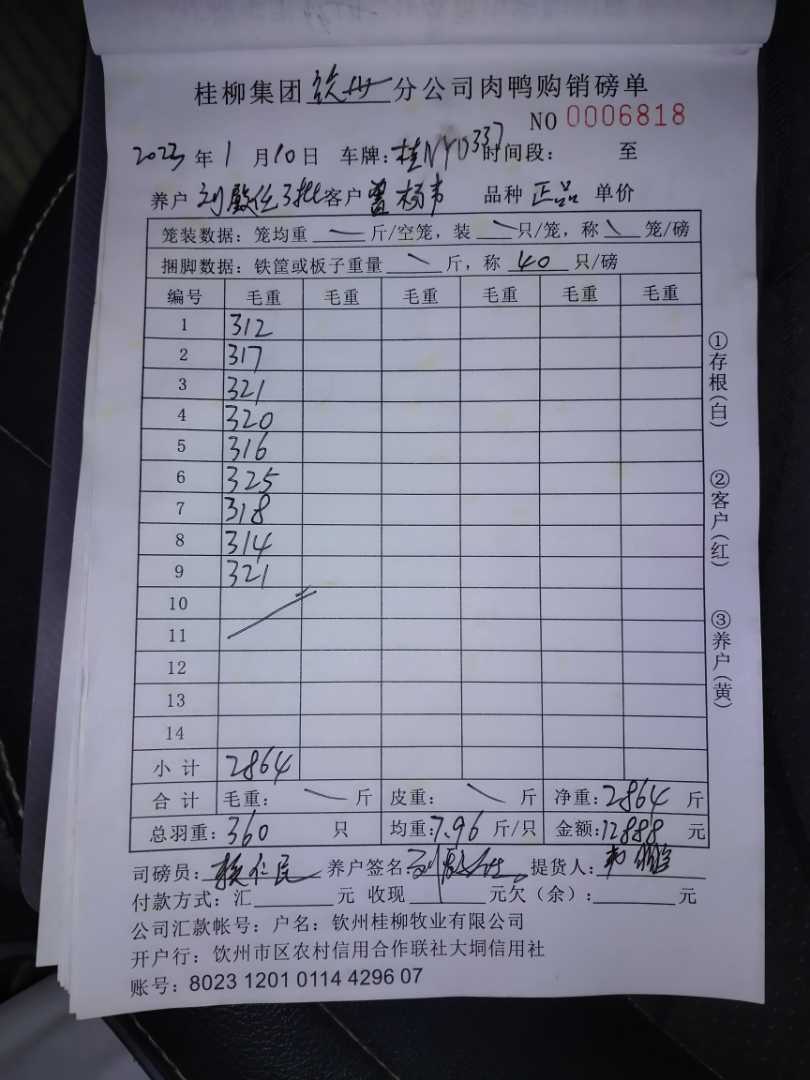 桂柳集团 钦州 分公司肉鸭购销磅单
NO 0006818
2023 年 1 月 10 日 车牌: 桂NYD337 时间段: 至
养户 刘 3批 客户 杨韦 品种 正品 单价
笼装数据: 笼均重 斤/空笼, 装 只/笼, 称 笼/磅
捆脚数据: 铁筐或板子重量 斤, 称 40 只/磅
编号 毛重 毛重 毛重 毛重 毛重 毛重
1 312
2 317
3 321
4 320
5 316
6 325
7 318
8 314
9 321
10
11
12
13
14
小计 2864
合计 毛重: 斤 皮重: 斤 净重: 2864 斤
总羽重: 360 只 均重: 7.96 斤/只 金额: 12888 元
司磅员: 养户签名: 刘 提货人: 韦
付款方式: 汇 元 收现 元欠(余): 元
公司汇款帐号: 户名: 钦州桂柳牧业有限公司
开户行: 钦州市区农村信用合作联社大垌信用社
账号: 8023 1201 0114 4296 07
①存根(白)
②客户(红)
③养户(黄)